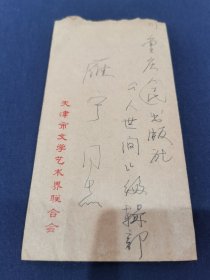 重庆人民出版社
《人世间》编辑部
雁宁同志
天津市文学艺术界联合会